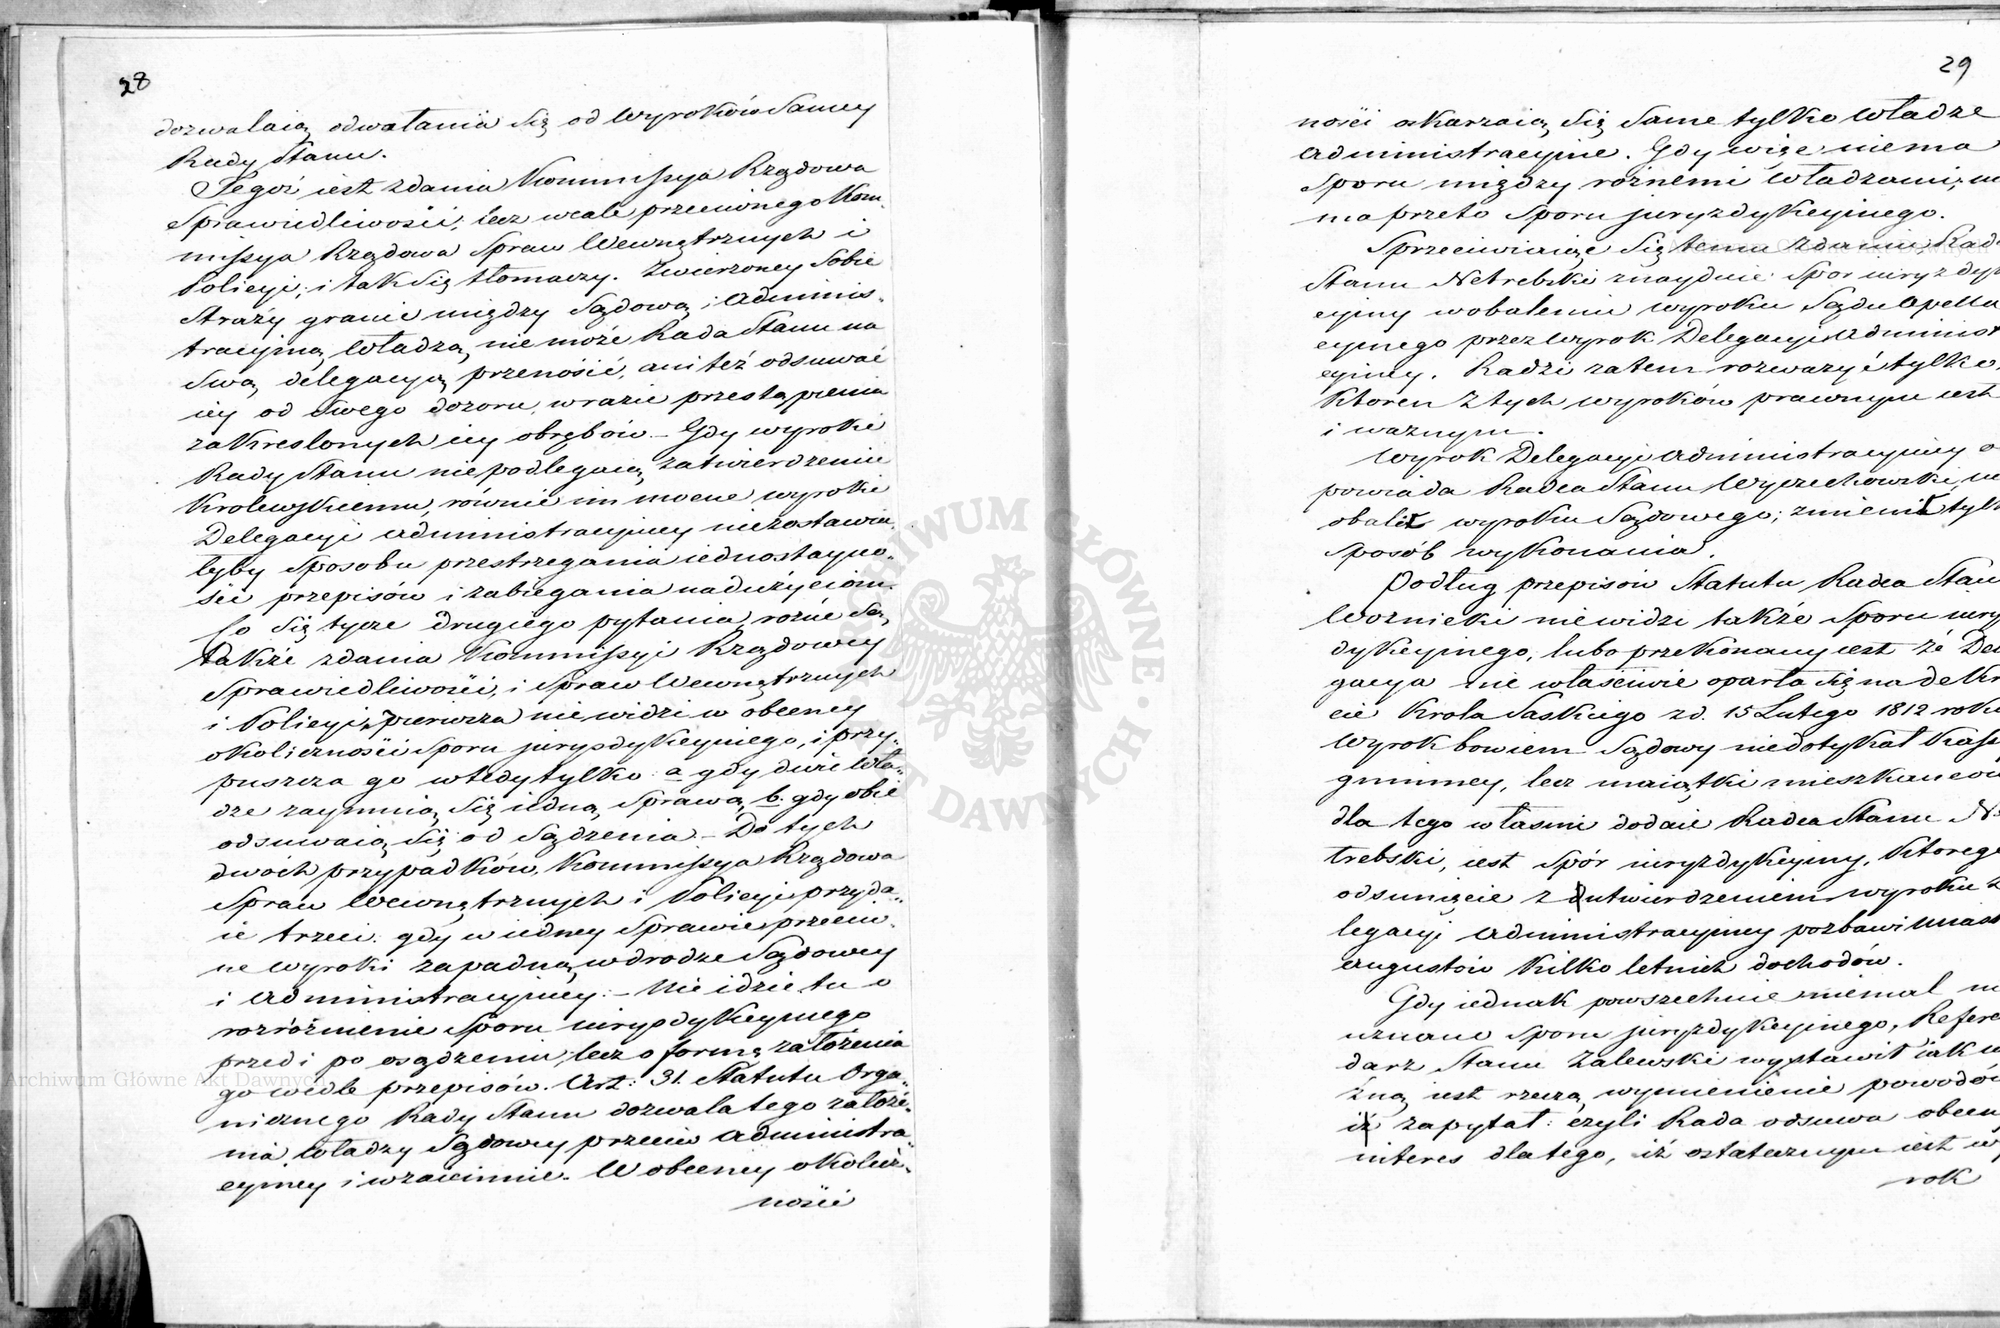 28
dozwalaią odwałania się od Wyroków Samey
Rady Stanu.
Tegoż iest zdania Kommissya Rządowa
Sprawiedliwości; lecz wcale przeciwnego Kom-
missya Rządowa Spraw Wewnętrznych i
Policyi; i tak się tłomaczy. Zwierzoney Sobie
Straży granic między Sądową i Adminis-
tracyiną Władzą, nie może Rada Stanu na
Swą delegacyą przenośić, ani też odsuwać
iey od Swego dozoru, w razie przestąpienia
zakreslonych iey obrębów – Gdy wyroki
Rady Stanu nie podlegaią zatwierdzeniu
Krolewskiemu, równie im mocne wyroki
Delegacyi Administracyiney niezostawia-
łyby Sposobu przestrzegania iednostayno-
ści przepisów i zabiegania nadużyciom.
Co się tycze drugiego pytania, rożne są
także zdania Kommissyi Rządowey
Sprawiedliwości, i Spraw Wewnętrznych
i Policyi, pierwsza nie widzi w obecney
okoliczności Sporu jurysdykcyinego, i przy-
puszcza go wtedy tylko: a gdy dwie Wła-
dze zaymuią się iedną Sprawą, b. gdy obie
odsuwaią się od Sądzenia – Do tych
dwóch przypadków, Kommissya Rządowa
Spraw Wewnętrznych i Policyi przyda-
ie trzeci: gdy w iedney Sprawie przeciw-
ne Wyroki zapadną, w drodze Sądowey
i Administracyiney: – Nie idzie tu o
rozróżnienie Sporu iurysdykcyinego
przed i po osądzeniu, lecz o formę założenia
go wedle przepisów. Art: 31. Statutu Orga-
nicznego Rady Stanu dozwala tego założe-
nia Władzy Sądowey przeciw Administra-
cyiney i wzaiemnie. W obecney okolicz-
ności
29
ności oskarzaią się Same tylko Władze
Administracyine. Gdy więc niema
Sporu między różnemi Władzami, n
ma przeto Sporu juryzdykcyinego.
Sprzeciwiaiąc się temu zdaniu, Rad
Stanu Netrebski znayduie Spor iuryzdy
cyiny w obaleniu wyroku Sądu Apella
cyinego przez Wyrok Delegacyi Administr
cyiney. Radzi zatem rozważyć tylko,
Ktoren z tych wyroków prawnym iest
i ważnym.
Wyrok Delegacyi Administracyiney o
powiada Radca Stanu Wyczechowski, ni
obalił wyroku Sądowego; zmienił tylk
sposób wykonania.
Podług przepisów Statutu Radca Stan
Woznicki niewidzi także Sporu iury
dykcyinego, lubo przekonany iest że Del
gacya nie właściwie oparła się na deKre
cie Krola Saskiego z d. 15 Lutego 1812 roku
Wyrok bowiem Sądowy niedotykał Kass
gminney, lecz maiątki mieszkańców
dla tego właśnie dodaie Radca Stanu Ne
trebski, iest Spór iuryzdykcyiny, Którego
odsunięcie z utwierdzeniem wyroku D
legacyi Administracyiney pozbawi miast
Augustów Kilko letnich dochodów.
Gdy iednak powszechnie niemal ni
uznano Sporu juryzdykcyinego, Refere
darz Stanu Zalewski wystawił iak w
żną iest rzeczą wymienienie powodów
i zapytał: czyli Rada odsuwa obecn
interes dlatego, iż ostatecznym iest wy
rok
ARCHIWUM GŁÓWNE AKT DAWNYCH
Archiwum Główne Akt Dawnych